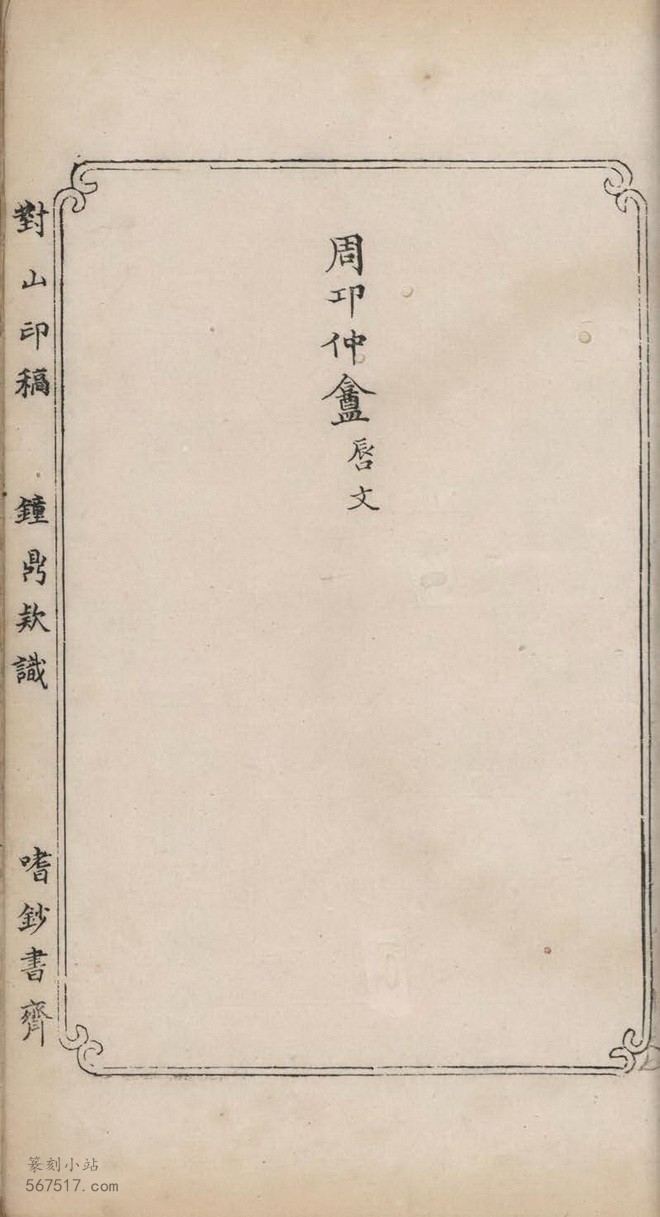 周卭仲盦
唇文
對山印稿 鐘鼎欵識 嗜鈔書齊
篆刻小站
567517.com